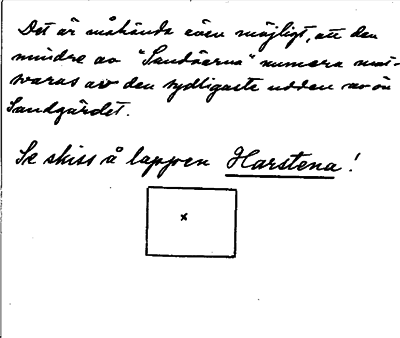 Det är måhända även möjligt, att den
mindre av "Sandöarna" numera mot-
svaras av den sydligaste udden av ön
Sandgärdet.
Se skiss å lappen Harstena!
x